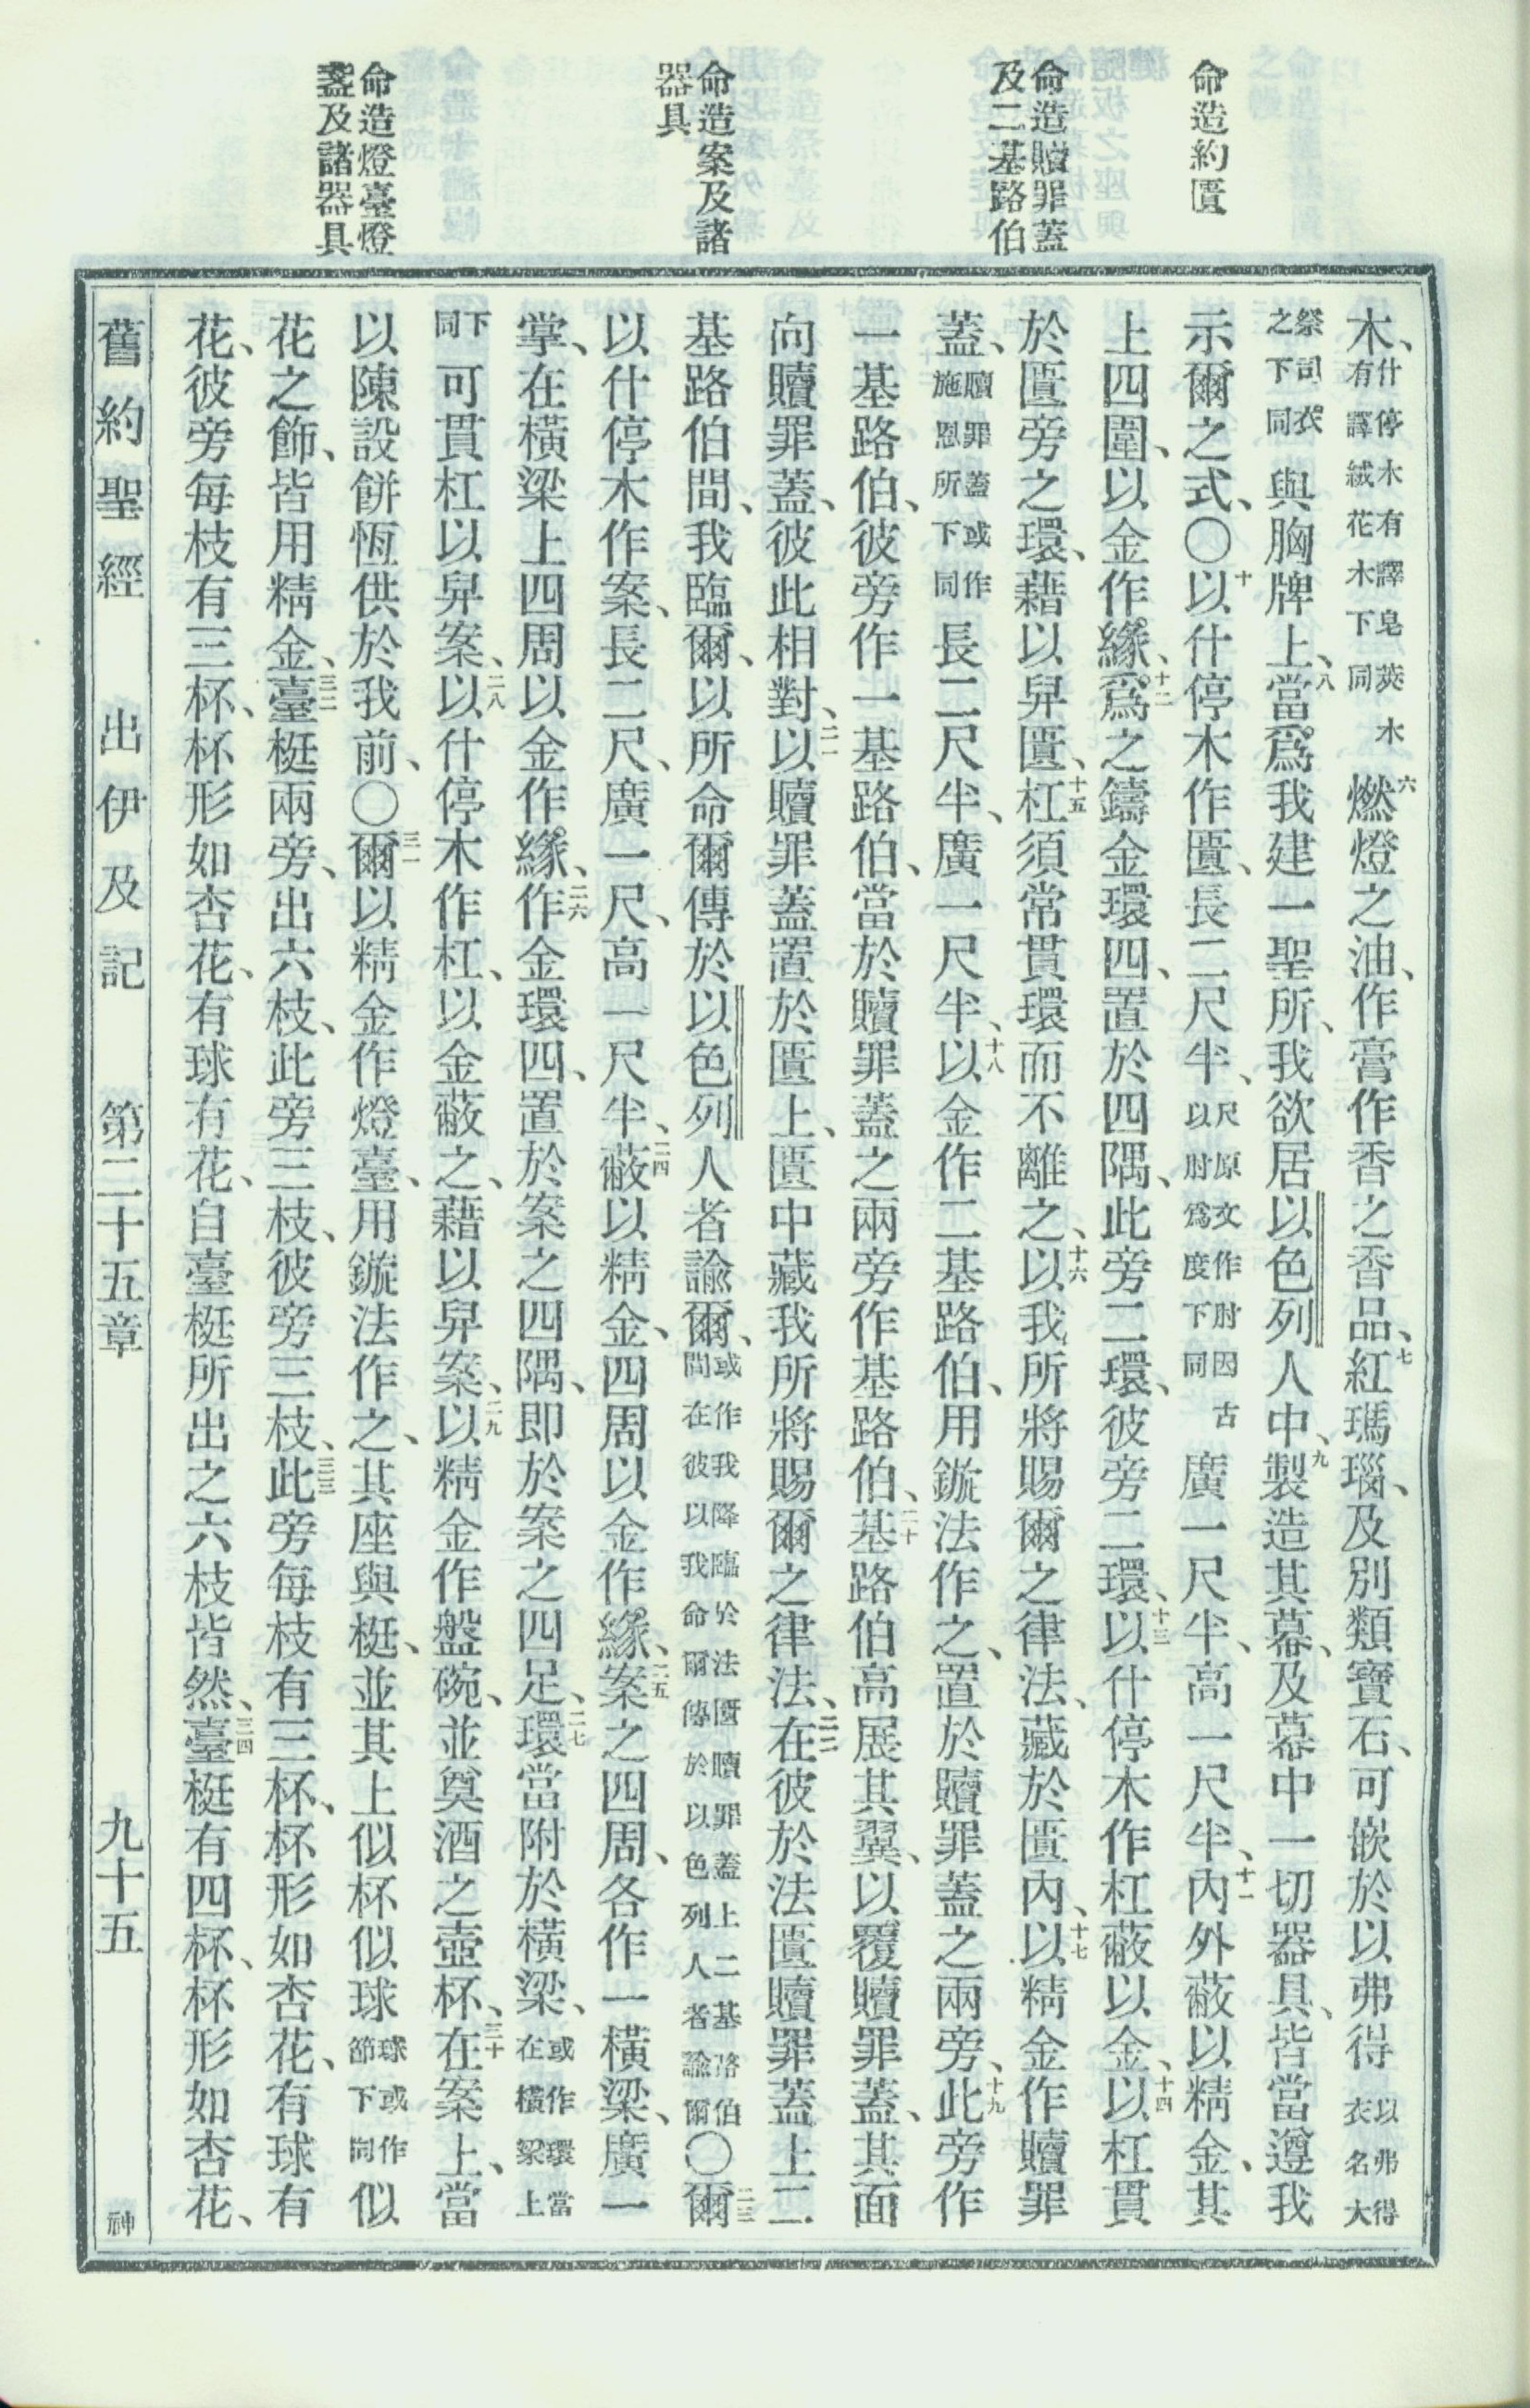 命造約匱
命造贖罪蓋
及二基路伯
命造案及諸
器具
命造燈臺燈
盞及諸器具
木、什停木有譯皂莢木有譯絨花木下同燃六燈之油、作膏作香之香品、紅七瑪瑙、及別類寶石、可嵌於以弗得以弗得衣名大
祭司衣之下同與胸牌上、當八爲我建一聖所、我欲居以色列人中、製九造其幕、及幕中一切器具、皆當遵我
示爾之式、〇以十什停木作匱、長二尺半、尺原文作肘因古以肘爲度下同廣一尺半、高一尺半、內十一外蔽以精金、其
上四圍、以金作緣、爲十二之鑄金環四、置於四隅、此旁二環、彼旁二環、以十三什停木作杠蔽以金、以十四杠貫
於匱旁之環、藉以舁匱、杠十五須常貫環而不離之、以十六我所將賜爾之律法、藏於匱內、以十七精金作贖罪
蓋、贖罪蓋或作施恩所下同長二尺半、廣一尺半、以十八金作二基路伯、用鏇法作之、置於贖罪蓋之兩旁、此十九旁作
一基路伯、彼旁作一基路伯、當於贖罪蓋之兩旁作基路伯、基二十路伯高展其翼、以覆贖罪蓋、其面
向贖罪蓋、彼此相對、以二一贖罪蓋置於匱上、匱中藏我所將賜爾之律法、在二二彼於法匱贖罪蓋上二
基路伯間、我臨爾、以所命爾傳於以色列人者諭爾、或作我降臨於法匱贖罪蓋上二基路伯間在彼以我命爾傳於以色列人者諭爾〇爾二三
以什停木作案、長二尺、廣一尺、高一尺半、蔽二四以精金、四周以金作緣、案二五之四周、各作一橫梁、廣一
掌、在橫梁上四周以金作緣、作二六金環四、置於案之四隅、即於案之四足、環二七當附於橫梁、或作環當在橫梁上
下同可貫杠以舁案、以二八什停木作杠、以金蔽之、藉以舁案、以二九精金作盤碗、並奠酒之壺杯、在三十案上、當
以陳設餅恆供於我前、〇爾三一以精金作燈臺、用鏇法作之、其座與梃、並其上似杯似球球或作節下同似
花之飾、皆用精金、臺三二梃兩旁、出六枝、此旁三枝、彼旁三枝、此三三旁每枝有三杯、杯形如杏花、有球有
花、彼旁每枝有三杯、杯形如杏花、有球有花、自臺梃所出之六枝皆然、臺三四梃有四杯、杯形如杏花、
舊約聖經 出伊及記 第二十五章 九十五 神